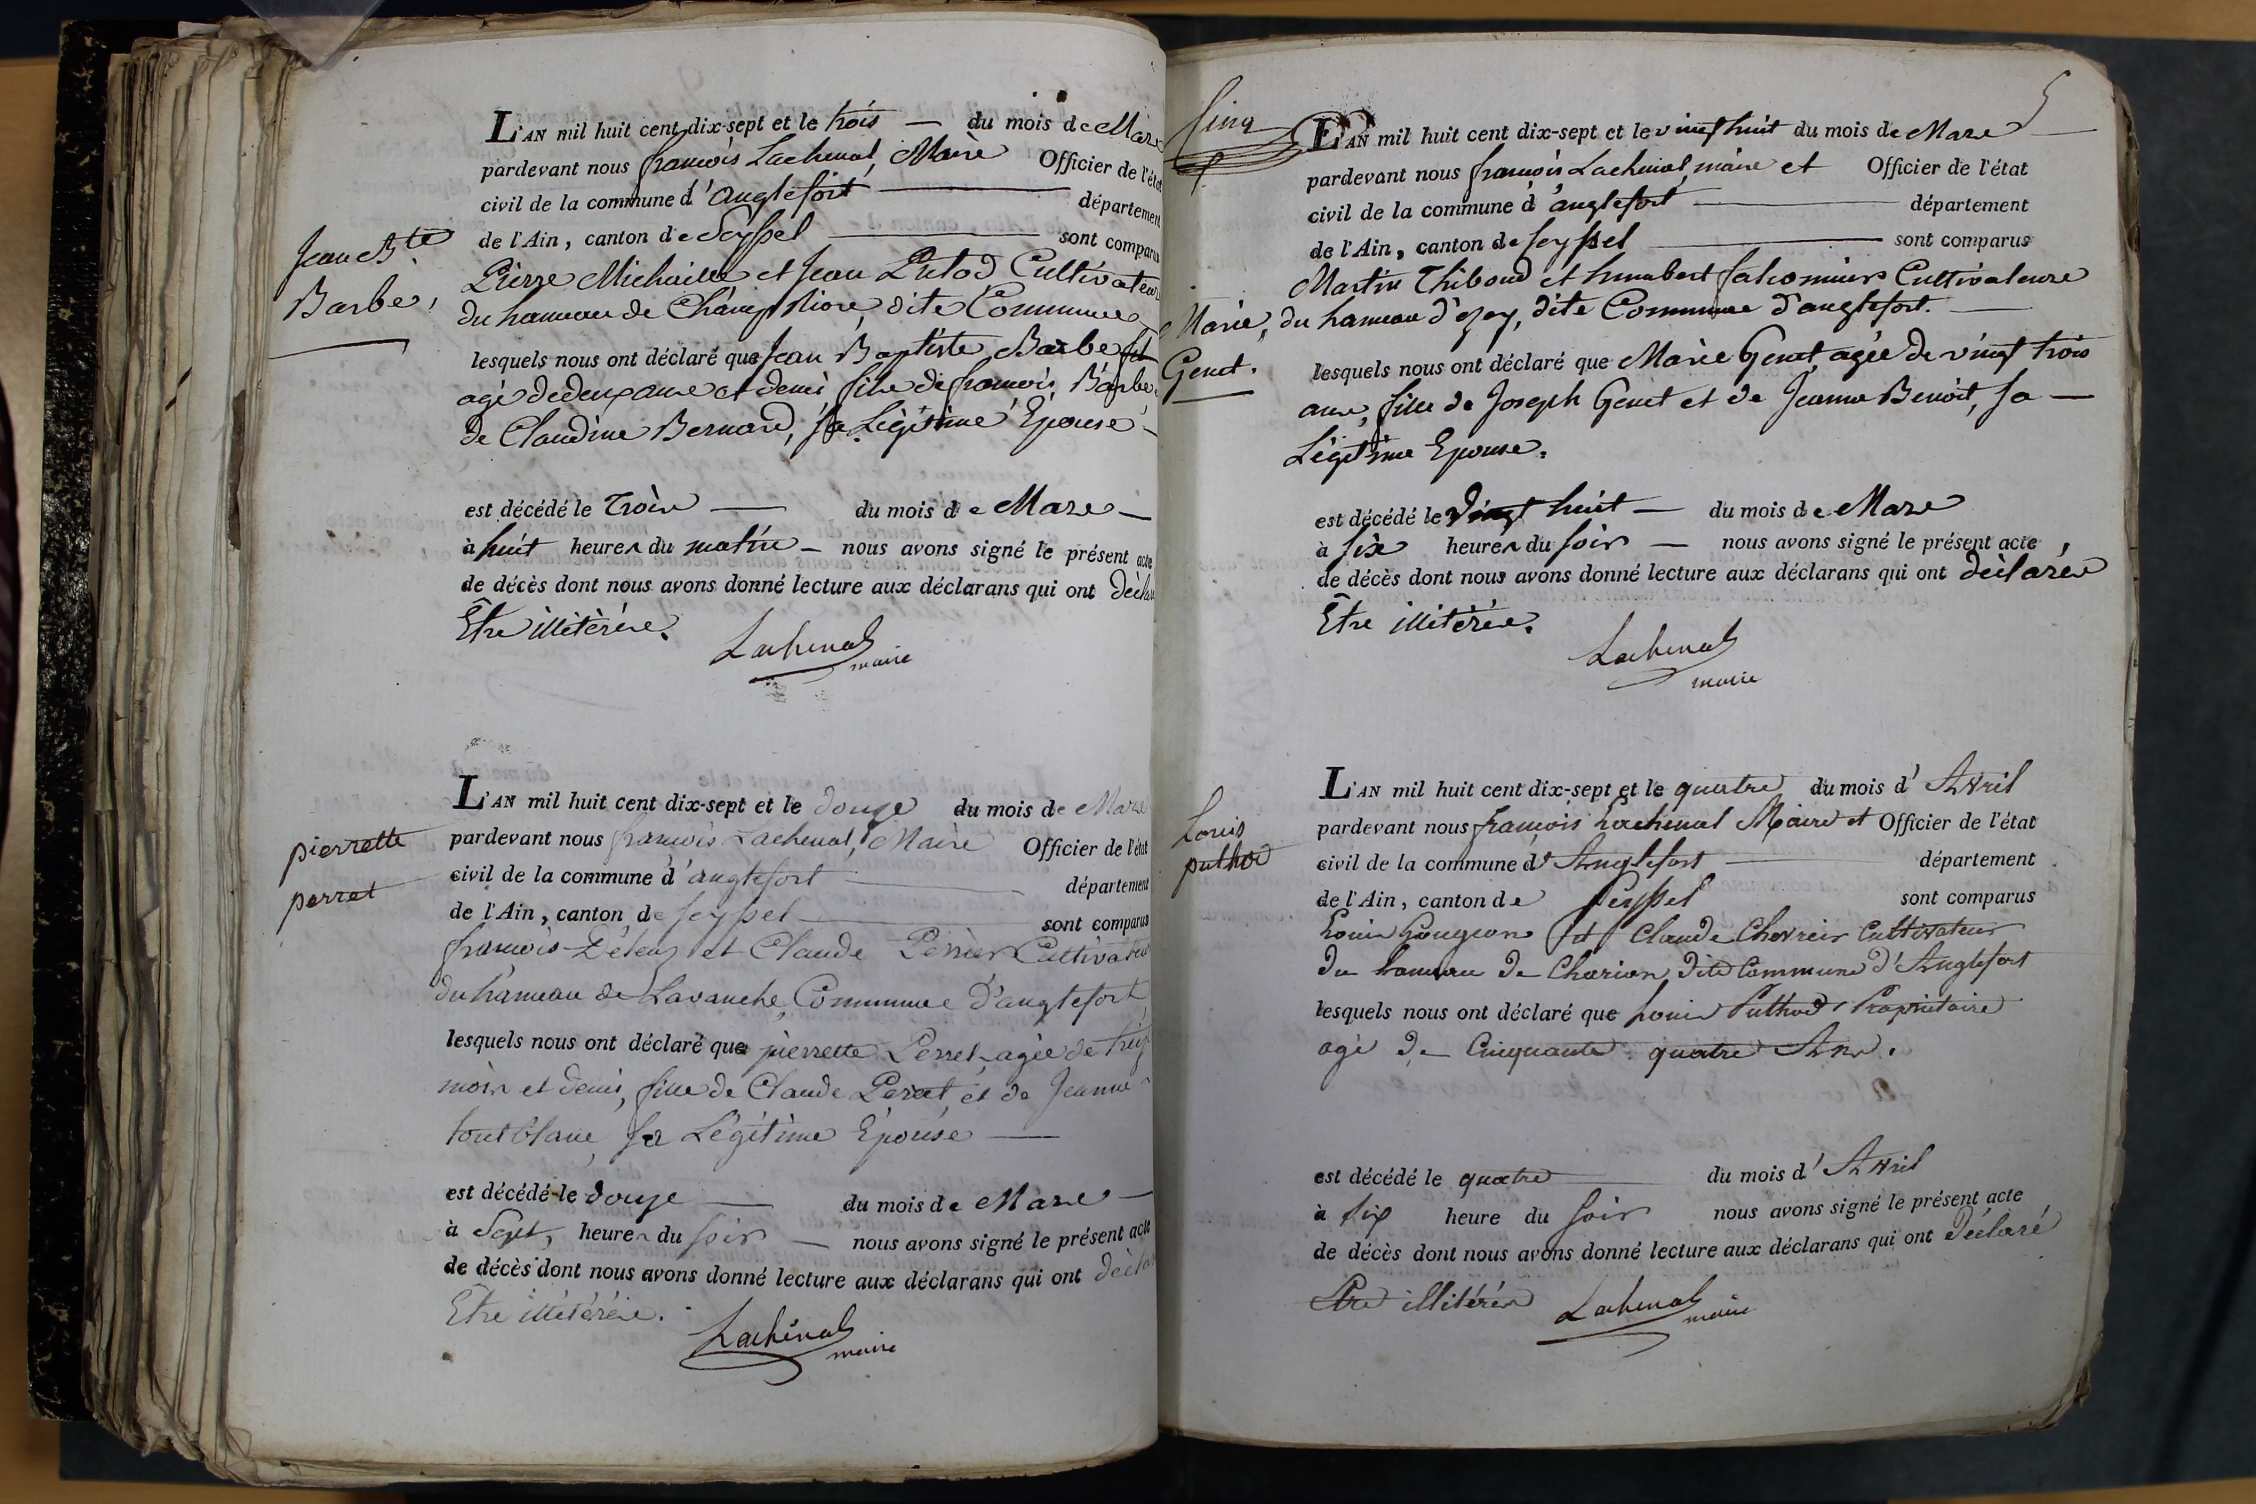 Jean Bte
Barbe,
L'AN mil huit cent dix-sept et le trois — du mois de Mars
pardevant nous françois Lachenal, Maire Officier de l'état
civil de la commune d'anglefort département
de l'Ain, canton de Seyssel sont comparus
Pierre Michailler et Jean Putod Cultivateurs
du hameau de dite Commune
lesquels nous ont déclaré que Jean Baptiste Barbe
agé de deux ans et demi fils de françois Barbe
de Claudine Bernard, sa Légitime Épouse
est décédé le Trois — du mois de Mars —
à huit heures du matin — nous avons signé le présent acte
de décès dont nous avons donné lecture aux déclarans qui ont
Être illitérés.
Lachenal
maire
pierrette
perret
L'AN mil huit cent dix-sept et le douze du mois de Mars
pardevant nous françois Lachenal, Maire Officier de l'état
civil de la commune d'anglefort département
de l'Ain, canton de Seyssel sont comparus
françois et Claude Perrier Cultivateurs
du hameau de Lavanche, Commune d'anglefort
lesquels nous ont déclaré que pierrette Perret, agée de
mois et demi, fille de Claude Perret, et de Jeanne
toutblanc, sa Légitime Épouse —
est décédé le douze — du mois de Mars —
à Sept, heures du soir — nous avons signé le présent acte
de décès dont nous avons donné lecture aux déclarans qui ont
Être illitérés.
Lachenal
maire
Cinq
5
Marie,
Genet.
L'AN mil huit cent dix-sept et le vingt huit du mois de Mars
pardevant nous françois Lachenal, maire et Officier de l'état
civil de la commune d'anglefort département
de l'Ain, canton de Seyssel sont comparus
Martin Thiboud et humbert Cultivateurs
du hameau d'ezey, dite Commune d'anglefort. —
lesquels nous ont déclaré que Marie Genet agée de vingt trois
ans, fille de Joseph Genet et de Jeanne Benoit, sa —
Légitime Epouse.
est décédé le vingt huit — du mois de Mars
à six heures du soir — nous avons signé le présent acte
de décès dont nous avons donné lecture aux déclarans qui ont déclarés
Être illitérés.
Lachenal
maire
Louis
puthod
L'AN mil huit cent dix-sept et le quatre du mois d'Avril
pardevant nous françois Lachenal Maire et Officier de l'état
civil de la commune d'Anglefort département
de l'Ain, canton de Seyssel sont comparus
Louis Gougeon et Claude Chevrier Cultivateur
du hameau de Dite Commune d'Anglefort
lesquels nous ont déclaré que Louis Puthod Propriétaire
agé de Cinquante quatre Ans.
est décédé le quatre du mois d'Avril
à six heure du soir nous avons signé le présent acte
de décès dont nous avons donné lecture aux déclarans qui ont Déclaré
Etre illitérés
Lachenal
maire